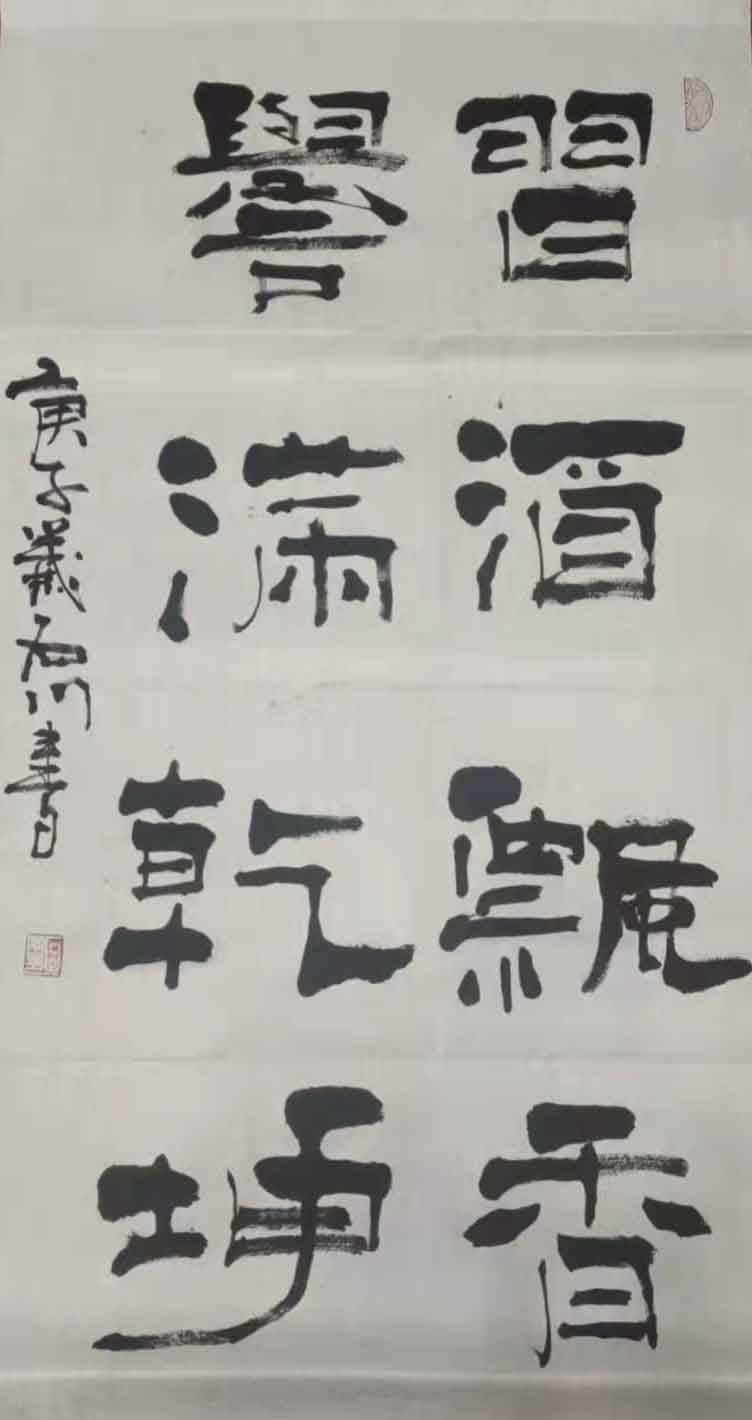 習酒飄香
譽滿乾坤
庚子歲石川書